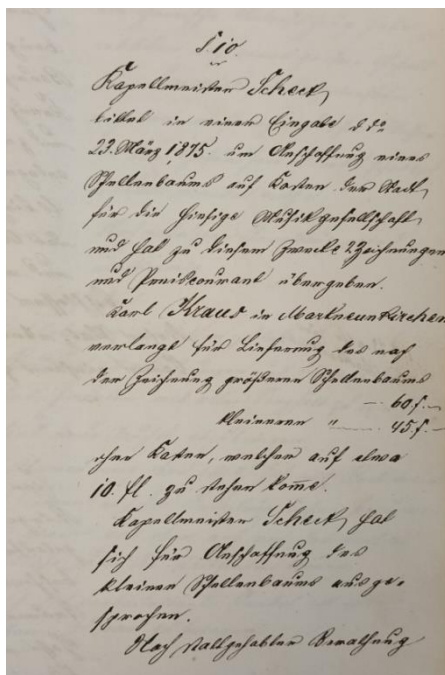 §.10.
Kapellmeister Scheck,
bittet in einer Eingabe d. do
23. März 1875. um Anschaffung eines
Schellenbaums auf Kosten der Stadt
für die hiesige Musikgesellschaft
und hat zu diesem Zwecke 2 Zeichnungen
und Preiscourant übergeben.
Karl Kraus in Markneunkirchen
verlangt für Lieferung des nach
der Zeichnung größeren Schellenbaums
— 60 f. —
kleineren " — 45 f. —
ohne Kasten, welcher auf etwa
10. fl. zu stehen kome.
Kapellmeister Scheck, hat
sich für Anschaffung des
kleinen Schellenbaums ausge-
sprochen.
Nach stattgehabter Berathung